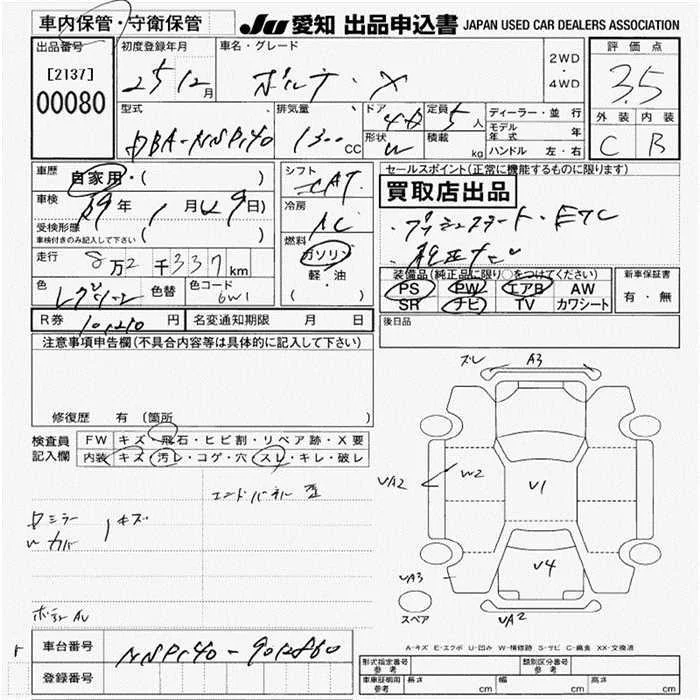 車内保管・守衛保管
JU 愛知 出品申込書 JAPAN USED CAR DEALERS ASSOCIATION
出品番号 初度登録年月 車名・グレード 評価点
[2137] 25 12月 ポルテ・X 2WD・4WD 3.5
00080
型式 排気量 ドア 定員 ディーラー・並行 外装 内装
DBA-NSP140 1300 CC 5人 モデル年式 年 C B
形状 積載 kg ハンドル 左・右
車歴 自家用・( ) シフト セールスポイント(正常に機能するものに限ります)
車検 29年 1月 29日) 冷房 AC 買取店出品
受検形態 ( ) ・プッシュスタート・ETC
車検付きのみ記入して下さい
走行 8万2千337km 燃料 ガソリン ・純正ナビ
軽・油 ( ・ )
装備品(純正品に限り○をつけてください) 新車保証書
色 色替 色コード 6W1 PS PW エアB AW 有・無
SR ナビ TV カワシート
R券 10,210円 名変通知期限 月 日 後日品
注意事項申告欄(不具合内容等は具体的に記入して下さい)
修復歴 有 (箇所 )
検査員記入欄 FW キズ・飛石・ヒビ割・リペア跡・X要
内装 キズ・汚レ・コゲ・穴・スレ・キレ・破レ
ズレ A3
エンドパネル 歪
UA2 W2 U1
ミラーカバー キズ
U4
UA3
スペア UA2
A-キズ E-エクボ U-凹み W-補修跡 S-サビ C-腐食 XX-交換済
車台番号 NSP140-9012860
登録番号
形式指定番号 参考 類別区分番号 参考
車車証明用 参考 長さ cm 幅 cm 高さ cm